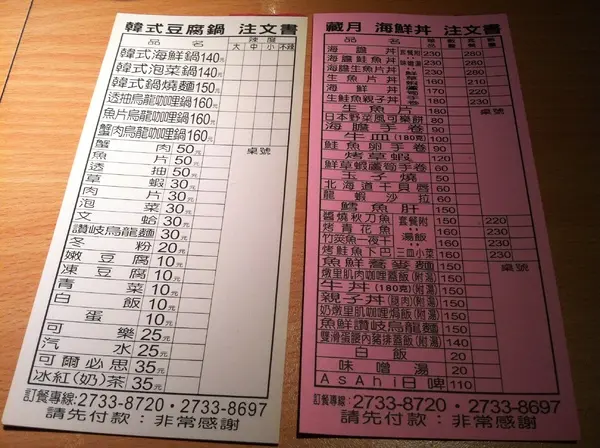 韓式豆腐鍋 注文書
品名 辣度
大 中 小 不辣
韓式海鮮鍋140元
韓式泡菜鍋140元
韓式鍋燒麵150元
透抽烏龍咖哩鍋160元
魚片烏龍咖哩鍋160元
蟹肉烏龍咖哩鍋160元
蟹肉50元 桌號
魚片50元
透抽50元
草蝦30元
肉片30元
泡菜30元
文蛤30元
讚岐烏龍麵30元
冬粉20元
嫩豆腐10元
凍豆腐10元
青菜10元
白飯10元
蛋10元
可樂25元
汽水25元
可爾必思35元
冰紅(奶)茶35元
訂餐專線:2733-8720・2733-8697
請先付款:非常感謝
藏月 海鮮丼 注文書
品名
海膽丼 套餐附 230 280
海膽鮭魚丼 味噌湯 230 280
海膽生魚片丼 230 280
生魚片丼 160 210
海鮮丼 160 210
生鮭魚親子丼 180 230
生魚片 160 桌號
日本野菜風可樂餅 80
海膽手卷 90
牛皿(180克) 100
鮭魚卵手卷 90
烤草蝦 120
鮮草蝦蘆筍手卷 60
玉子燒 50
北海道干貝唇 60
龍蝦沙拉 60
鱈魚肝 150
醬燒秋刀魚 套餐附 150 220
烤青花魚 160 230
竹筴魚一夜干 湯飯 160 230
烤鮭魚下巴 三皿小菜 160 230
魚鮮蕎麥麵 150 桌號
燉里肌肉咖哩蓋飯(附湯) 150
牛丼(180克)(附湯) 150
親子丼(腿肉)(附湯) 150
奶燉里肌肉咖哩焗飯(附湯) 150
魚鮮讚岐烏龍麵 150
雙滑蛋腰內豬排蓋飯(附湯) 140
白飯 20
味噌湯 20
AsAhi日啤 110
訂餐專線:2733-8720・2733-8697
請先付款:非常感謝